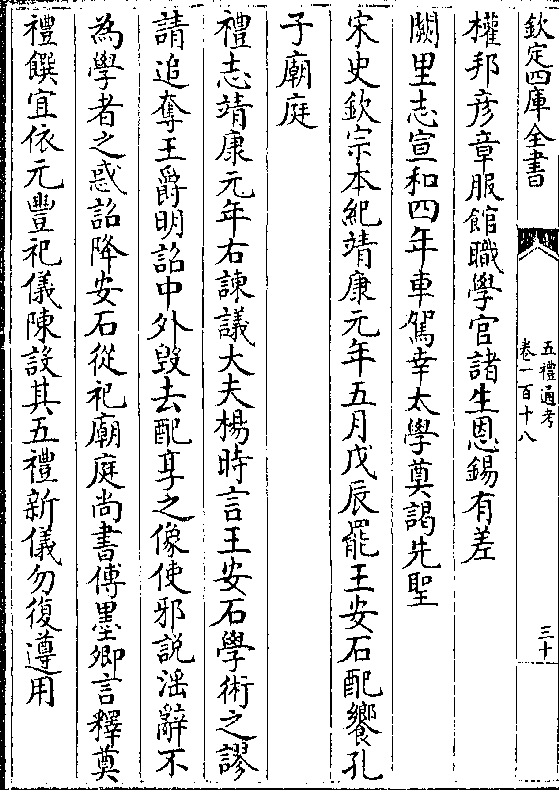 欽定四庫全書
五禮通考
卷一百十八
三十
權邦彦章服館職學官諸生恩錫有差
闕里志宣和四年車駕幸太學奠謁先聖
宋史欽宗本紀靖康元年五月戊辰罷王安石配饗孔
子廟庭
禮志靖康元年右諫議大夫楊時言王安石學術之謬
請追奪王爵明詔中外毀去配享之像使邪説滛辭不
為學者之惑詔降安石從祀廟庭尚書傅墨卿言釋奠
禮饌宜依元豐祀儀陳設其五禮新儀勿復遵用